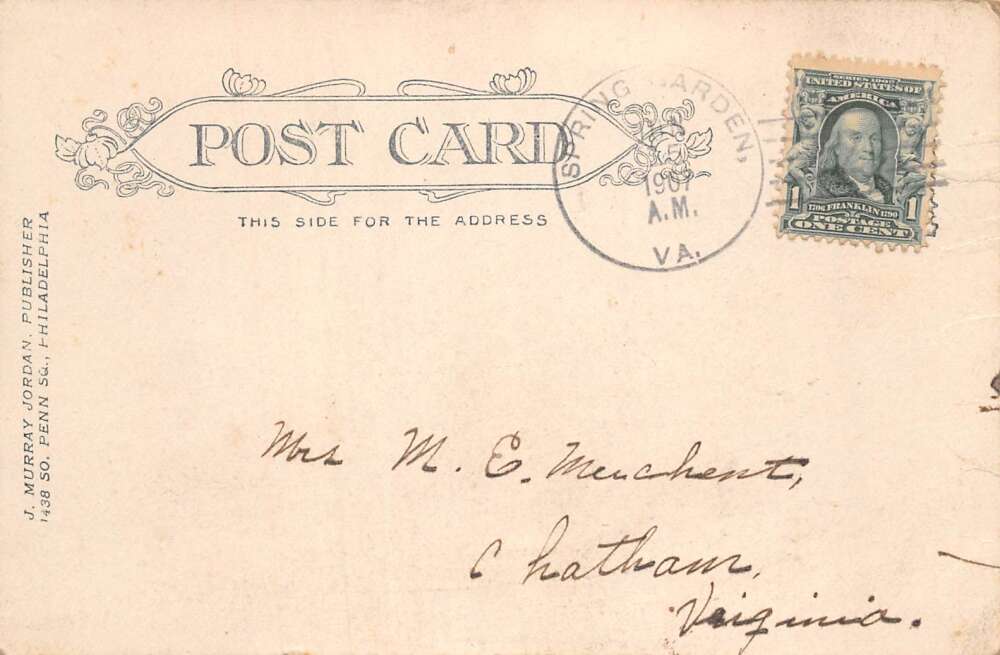 POST CARD
THIS SIDE FOR THE ADDRESS
SPRING GARDEN,
1907
A.M.
VA.
SERIES 1902
UNITED STATES OF
AMERICA
1706 FRANKLIN 1790
1 1
POSTAGE
ONE CENT
J. MURRAY JORDAN, PUBLISHER
1438 SO. PENN SQ., PHILADELPHIA
Mrs M. E. Merchent,
Chatham,
Virginia.